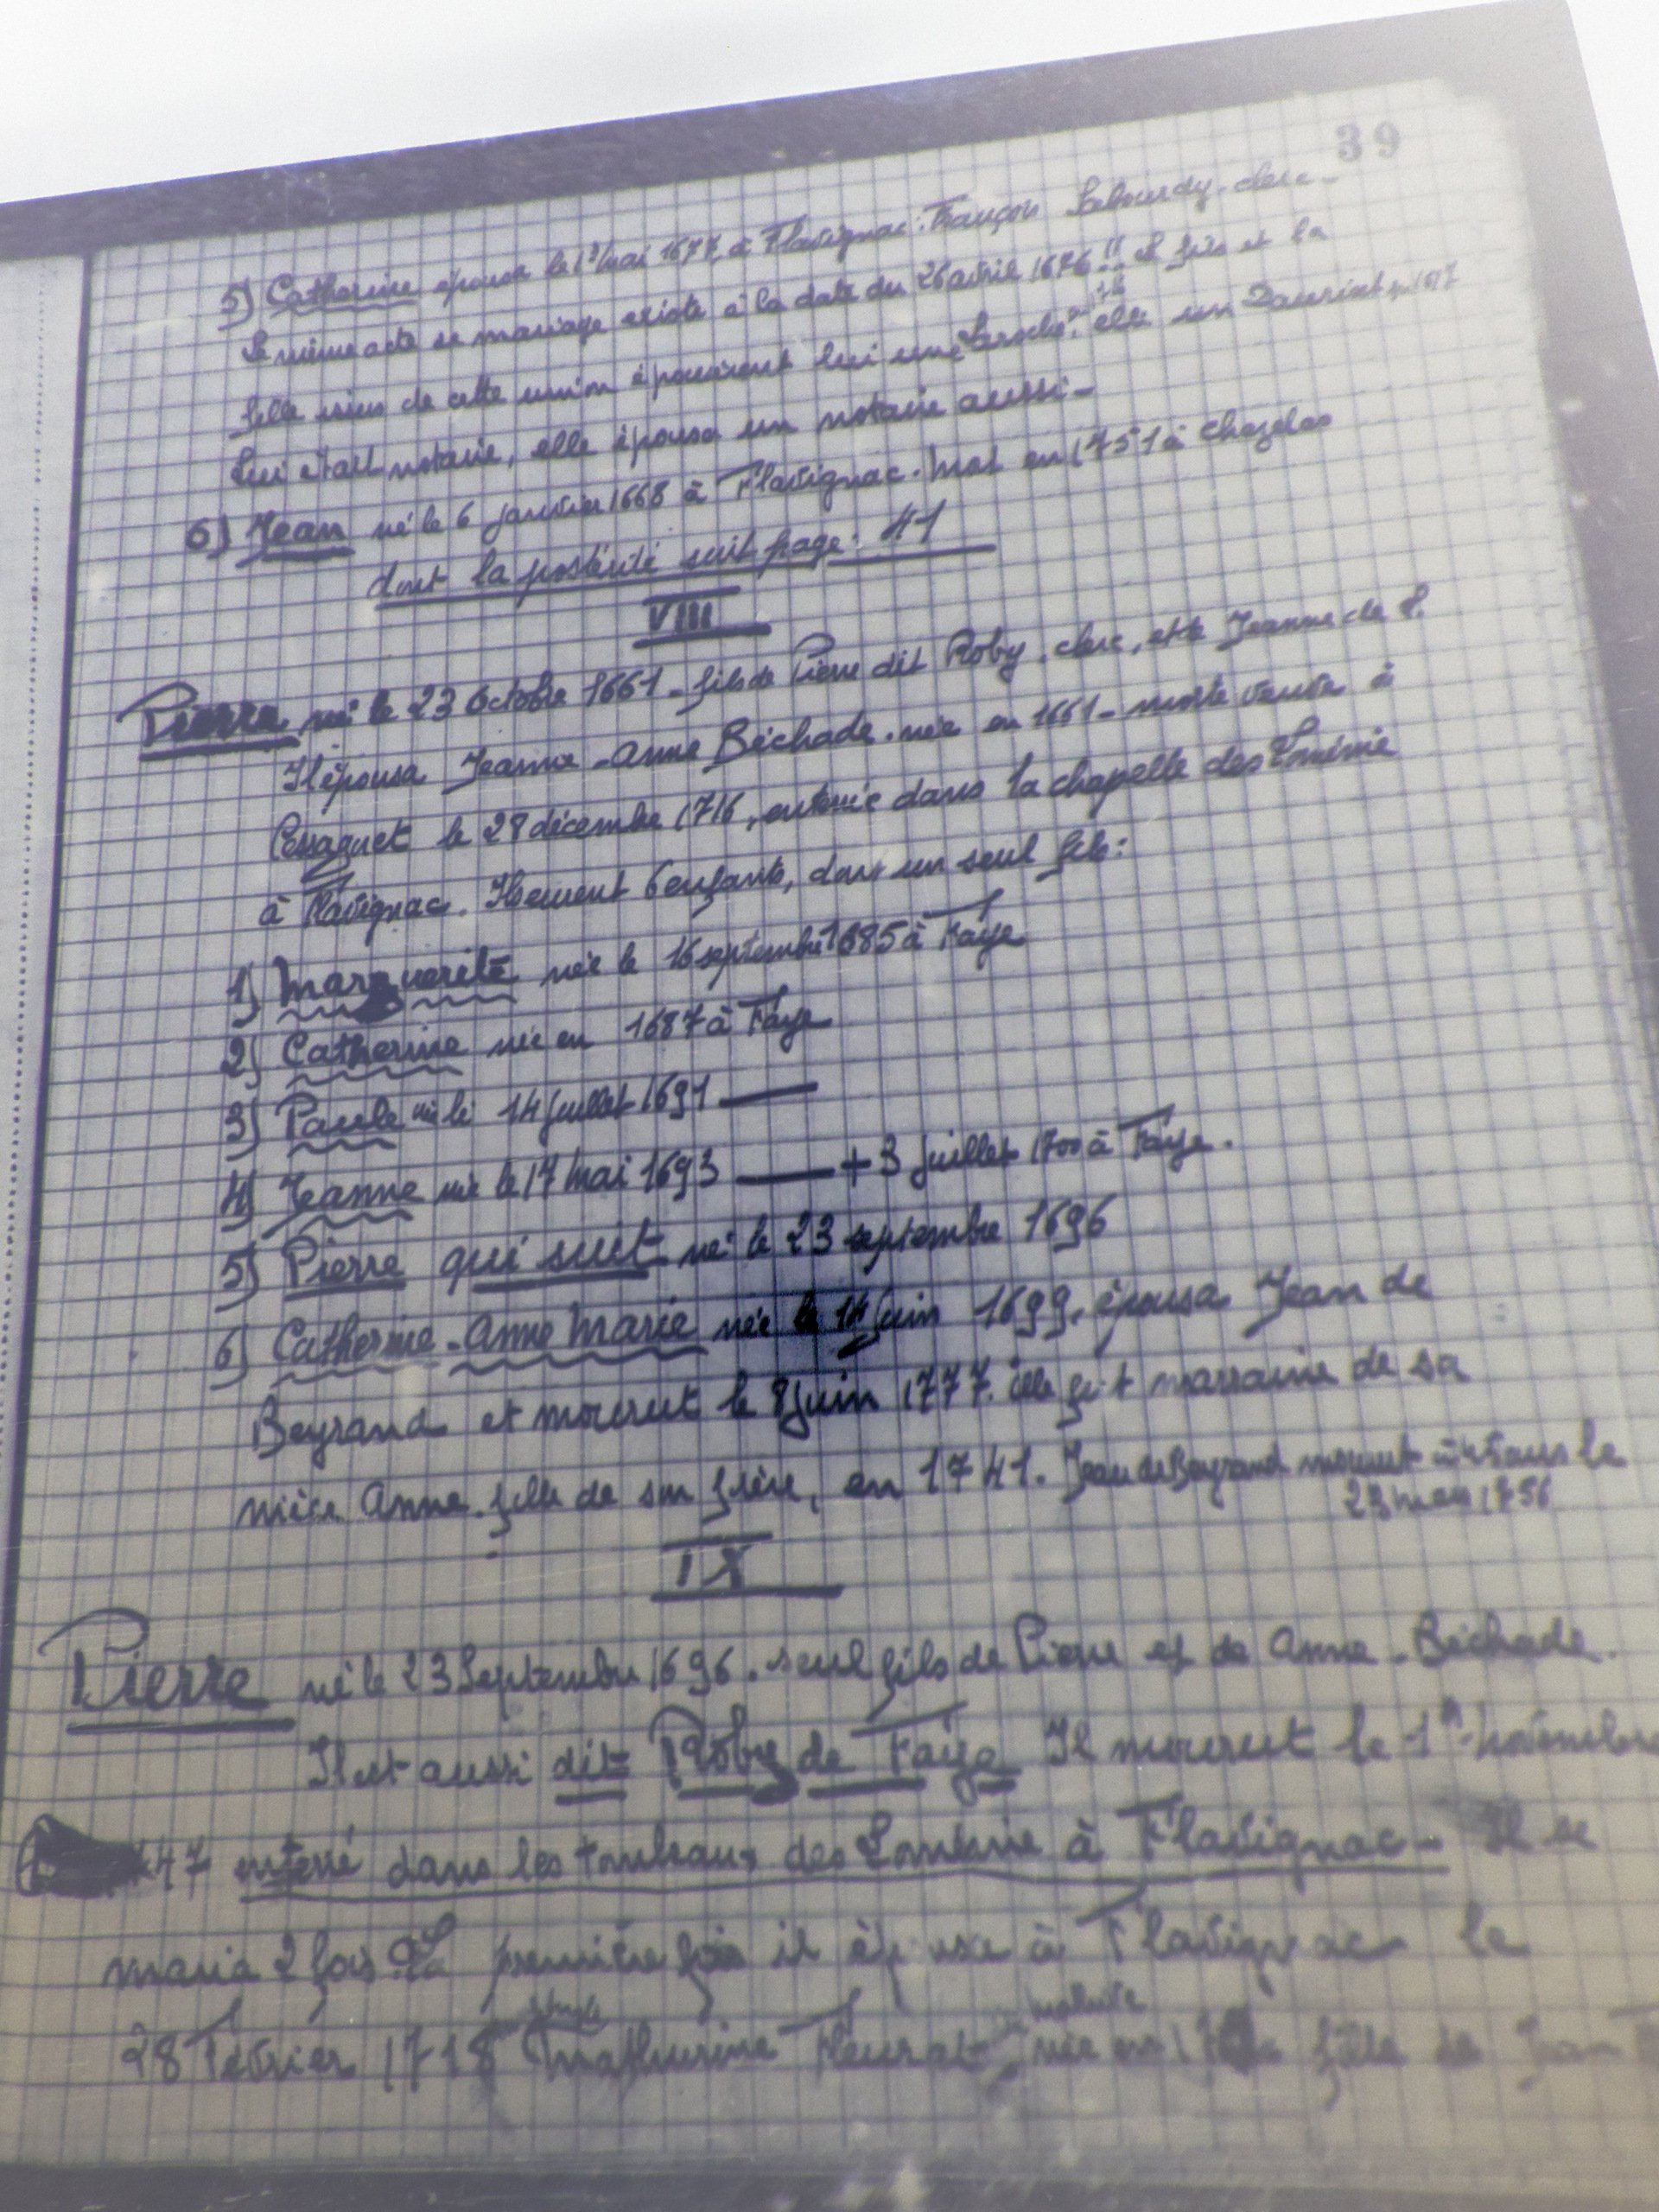 39
5) Catherine épousa le 1er mai 1677 à Flavignac: François Labourdy. clerc -
Le même acte de mariage existe à la date du 26 avril 1676!! Le fils et la
fille issus de cette union épousèrent lui une Laroche, elle un
Lui était notaire, elle épousa un notaire aussi -
6) Jean né le 6 janvier 1668 à Flavignac. Mort en 1751 à Chazelas
dont la postérité suit page: 41
VIII
Pierre né le 23 Octobre 1661 - fils de Pierre dit Roby, clerc, et de Jeanne de L.
Il épousa Jeanne - Anne Béchade. née en 1661 - morte veuve à
le 28 décembre 1716, enterrée dans la chapelle des Loménie
à Flavignac. Ils eurent 6 enfants, dont un seul fils:
1) Marguerite née le 16 septembre 1685 à Faye
2) Catherine née en 1687 à Faye
3) Paule née le 14 juillet 1691 —
4) Jeanne née le 17 Mai 1693 — + 3 juillet 1700 à Faye.
5) Pierre qui suit né le 23 septembre 1696
6) Catherine - Anne Marie née le 14 juin 1699, épousa Jean de
Beyrand et mourut le 8 juin 1777. elle fut marraine de sa
nièce Anne. fille de son frère, en 1741. Jean de Beyrand mourut à ans le
23 mars 1756
IX
Pierre né le 23 Septembre 1696. seul fils de Pierre et de Anne - Béchade.
Il est aussi dit Roby de Faye Il mourut le 1er Novembre
47 enterré dans les tombeaux des Loménie à Flavignac - Il se
maria 2 fois. La première fois il épousa à Flavignac le
28 Février 1718 Mathurine Fleurat née en fille de Jean